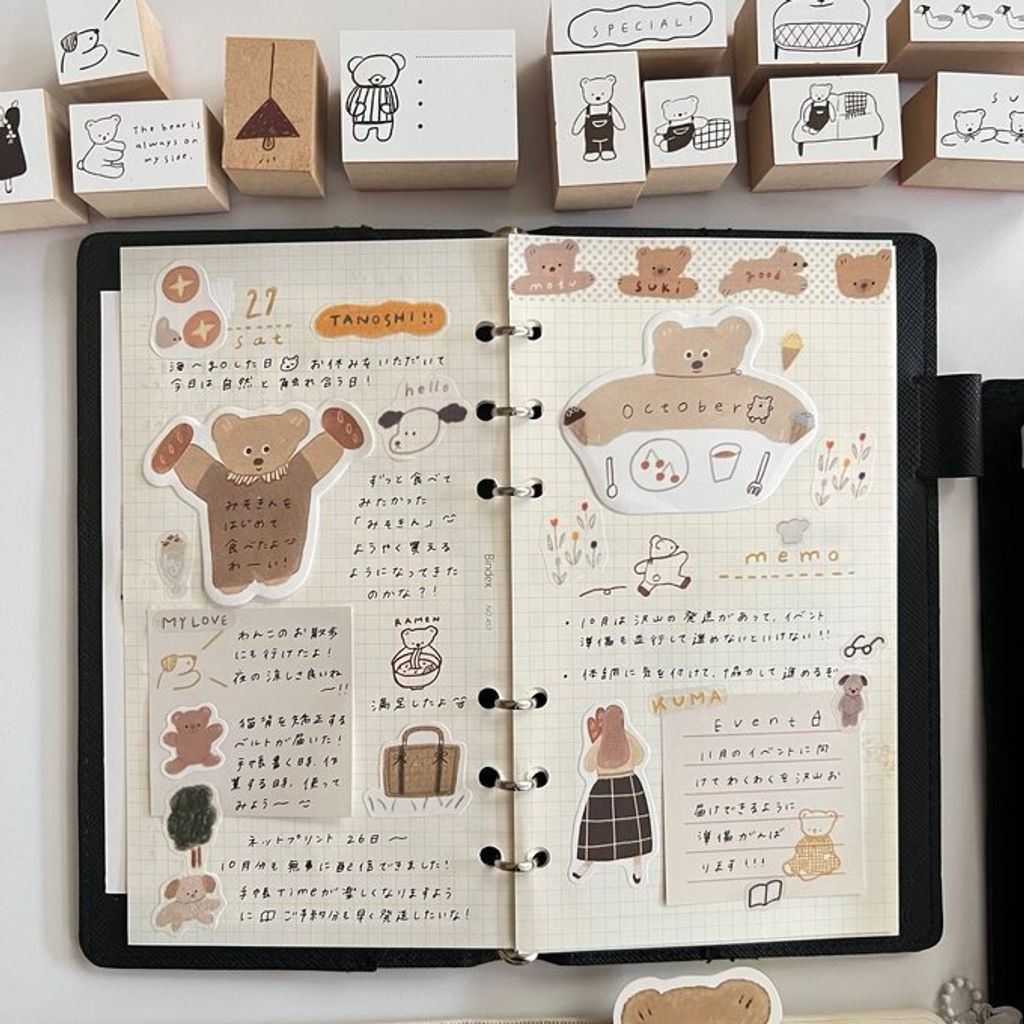 SPECIAL!
The bear is
always on
my side.
SU
27
sat
TANOSHI!!
海へ行った日 お休みをいただいて
今日は自然と触れ合う日!
hello
みそきんを
はじめて
食べたよ
わーい!
ずっと食べて
みたかった
「みそきん」
ようやく買える
ようになってきた
のかな?!
MY LOVE
わんこのお散歩
にも行けたよ!
夜の涼しさ良いね
〜!!
猫背を矯正する
ベルトが届いた!
手帳書く時、作
業する時、使って
みよう〜
RAMEN
満足したよ
ネットプリント 26日〜
10月分も無事に配信できました!
手帳Timeが楽しくなりますよう
に ご予約分も早く発送したいな!
Bindex
mofu
suki
good
October
memo
• 10月は沢山の発送があって、イベント
準備も並行して進めないといけない!!
• 体調に気を付けて、協力して進めるぞ
KUMA
Event
11月のイベントに向
けてわくわくを沢山お
届けできるように
準備がんば
ります!!!